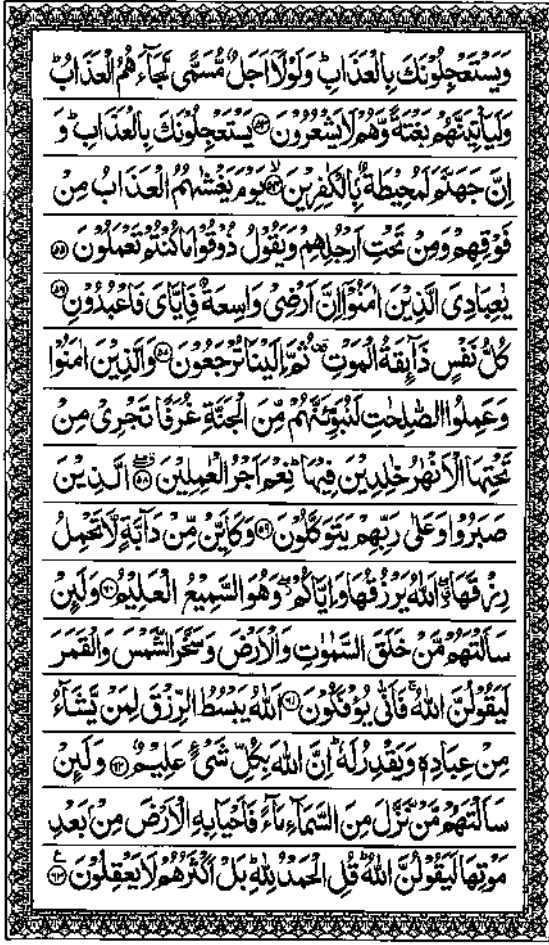 وَيَسْتَعْجِلُوْنَكَ بِالْعَذَابِ ؕ وَلَوْلَاۤ اَجَلٌ مُّسَمًّى لَّجَآءَهُمُ الْعَذَابُ ؕ
وَلَيَاْتِيَنَّهُمْ بَغْتَةً وَّهُمْ لَا يَشْعُرُوْنَ ﴿۵۳﴾ يَسْتَعْجِلُوْنَكَ بِالْعَذَابِ ؕ وَ
اِنَّ جَهَنَّمَ لَمُحِيْطَةٌۢ بِالْكٰفِرِيْنَ ﴿۵۴﴾ۙ يَوْمَ يَغْشٰىهُمُ الْعَذَابُ مِنْ
فَوْقِهِمْ وَمِنْ تَحْتِ اَرْجُلِهِمْ وَيَقُوْلُ ذُوْقُوْا مَا كُنْتُمْ تَعْمَلُوْنَ ﴿۵۵﴾
يٰعِبَادِيَ الَّذِيْنَ اٰمَنُوْۤا اِنَّ اَرْضِيْ وَاسِعَةٌ فَاِيَّايَ فَاعْبُدُوْنِ ﴿۵۶﴾
كُلُّ نَفْسٍ ذَآئِقَةُ الْمَوْتِ ۫ ثُمَّ اِلَيْنَا تُرْجَعُوْنَ ﴿۵۷﴾ وَالَّذِيْنَ اٰمَنُوْا
وَعَمِلُوا الصّٰلِحٰتِ لَنُبَوِّئَنَّهُمْ مِّنَ الْجَنَّةِ غُرَفًا تَجْرِيْ مِنْ
تَحْتِهَا الْاَنْهٰرُ خٰلِدِيْنَ فِيْهَا ؕ نِعْمَ اَجْرُ الْعٰمِلِيْنَ ﴿۵۸﴾ الَّذِيْنَ
صَبَرُوْا وَعَلٰى رَبِّهِمْ يَتَوَكَّلُوْنَ ﴿۵۹﴾ وَكَاَيِّنْ مِّنْ دَآبَّةٍ لَّا تَحْمِلُ
رِزْقَهَا ۖ اَللّٰهُ يَرْزُقُهَا وَاِيَّاكُمْ ۖ وَهُوَ السَّمِيْعُ الْعَلِيْمُ ﴿۶۰﴾ وَلَئِنْ
سَاَلْتَهُمْ مَّنْ خَلَقَ السَّمٰوٰتِ وَالْاَرْضَ وَسَخَّرَ الشَّمْسَ وَالْقَمَرَ
لَيَقُوْلُنَّ اللّٰهُ ۚ فَاَنّٰى يُؤْفَكُوْنَ ﴿۶۱﴾ اَللّٰهُ يَبْسُطُ الرِّزْقَ لِمَنْ يَّشَآءُ
مِنْ عِبَادِهٖ وَيَقْدِرُ لَهٗ ؕ اِنَّ اللّٰهَ بِكُلِّ شَيْءٍ عَلِيْمٌ ﴿۶۲﴾ وَلَئِنْ
سَاَلْتَهُمْ مَّنْ نَّزَّلَ مِنَ السَّمَآءِ مَآءً فَاَحْيَا بِهِ الْاَرْضَ مِنْۢ بَعْدِ
مَوْتِهَا لَيَقُوْلُنَّ اللّٰهُ ؕ قُلِ الْحَمْدُ لِلّٰهِ ؕ بَلْ اَكْثَرُهُمْ لَا يَعْقِلُوْنَ ﴿۶۳﴾ ع